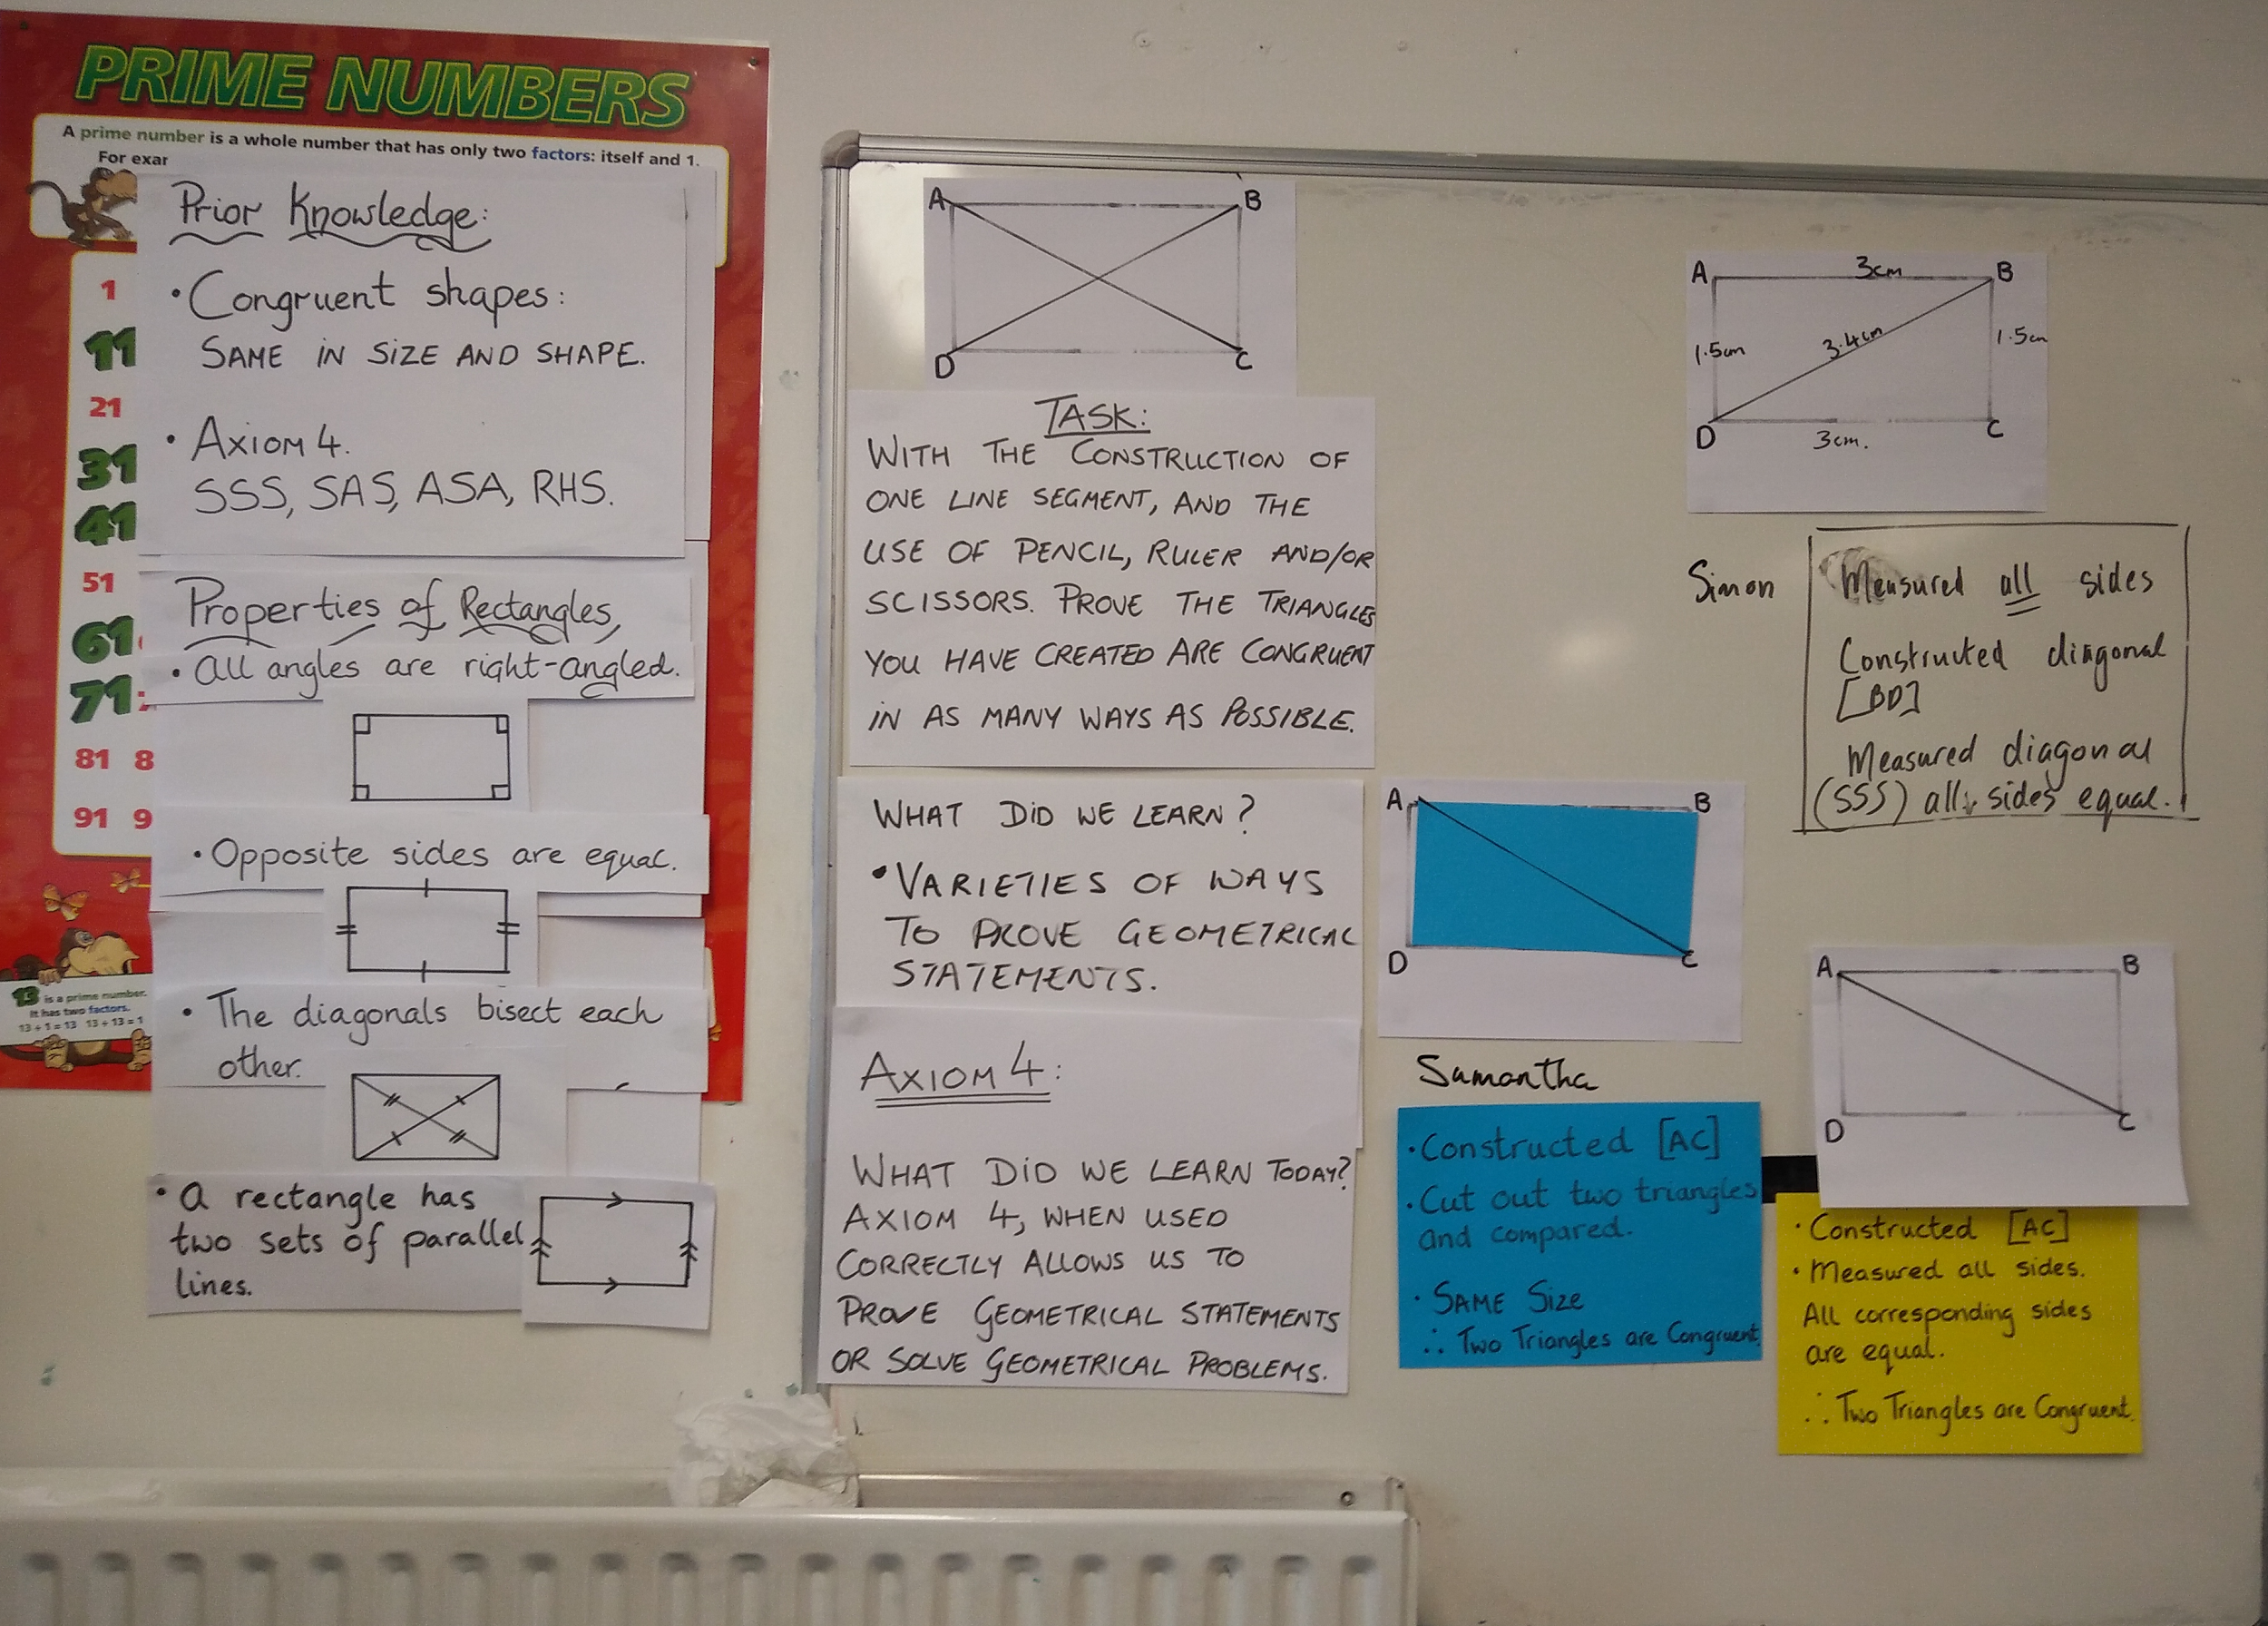 PRIME NUMBERS
A prime number is a whole number that has only two factors: itself and 1.
For exar
1
11
21
31
41
51
61
71
81 8
91 9
13 is a prime number.
It has two factors.
13 ÷ 1 = 13 13 ÷ 13 = 1
Prior Knowledge:
• Congruent shapes:
SAME IN SIZE AND SHAPE.
• AXIOM 4.
SSS, SAS, ASA, RHS.
Properties of Rectangles,
• All angles are right-angled.
• Opposite sides are equal.
• The diagonals bisect each
other.
• A rectangle has
two sets of parallel
lines.
A B
D C
TASK:
WITH THE CONSTRUCTION OF
ONE LINE SEGMENT, AND THE
USE OF PENCIL, RULER AND/OR
SCISSORS. PROVE THE TRIANGLES
YOU HAVE CREATED ARE CONGRUENT
IN AS MANY WAYS AS POSSIBLE.
WHAT DID WE LEARN?
• VARIETIES OF WAYS
TO PROVE GEOMETRICAL
STATEMENTS.
AXIOM 4:
WHAT DID WE LEARN TODAY?
AXIOM 4, WHEN USED
CORRECTLY ALLOWS US TO
PROVE GEOMETRICAL STATEMENTS
OR SOLVE GEOMETRICAL PROBLEMS.
A 3cm B
1.5cm 3.4cm 1.5cm
D 3cm. C
Simon
Measured all sides
Constructed diagonal
[BD]
Measured diagonal
(SSS) all sides equal.
A B
D C
Samantha
• Constructed [AC]
• Cut out two triangles
and compared.
• SAME Size
∴ Two Triangles are Congruent
A B
D C
• Constructed [AC]
• Measured all sides.
All corresponding sides
are equal.
∴ Two Triangles are Congruent.